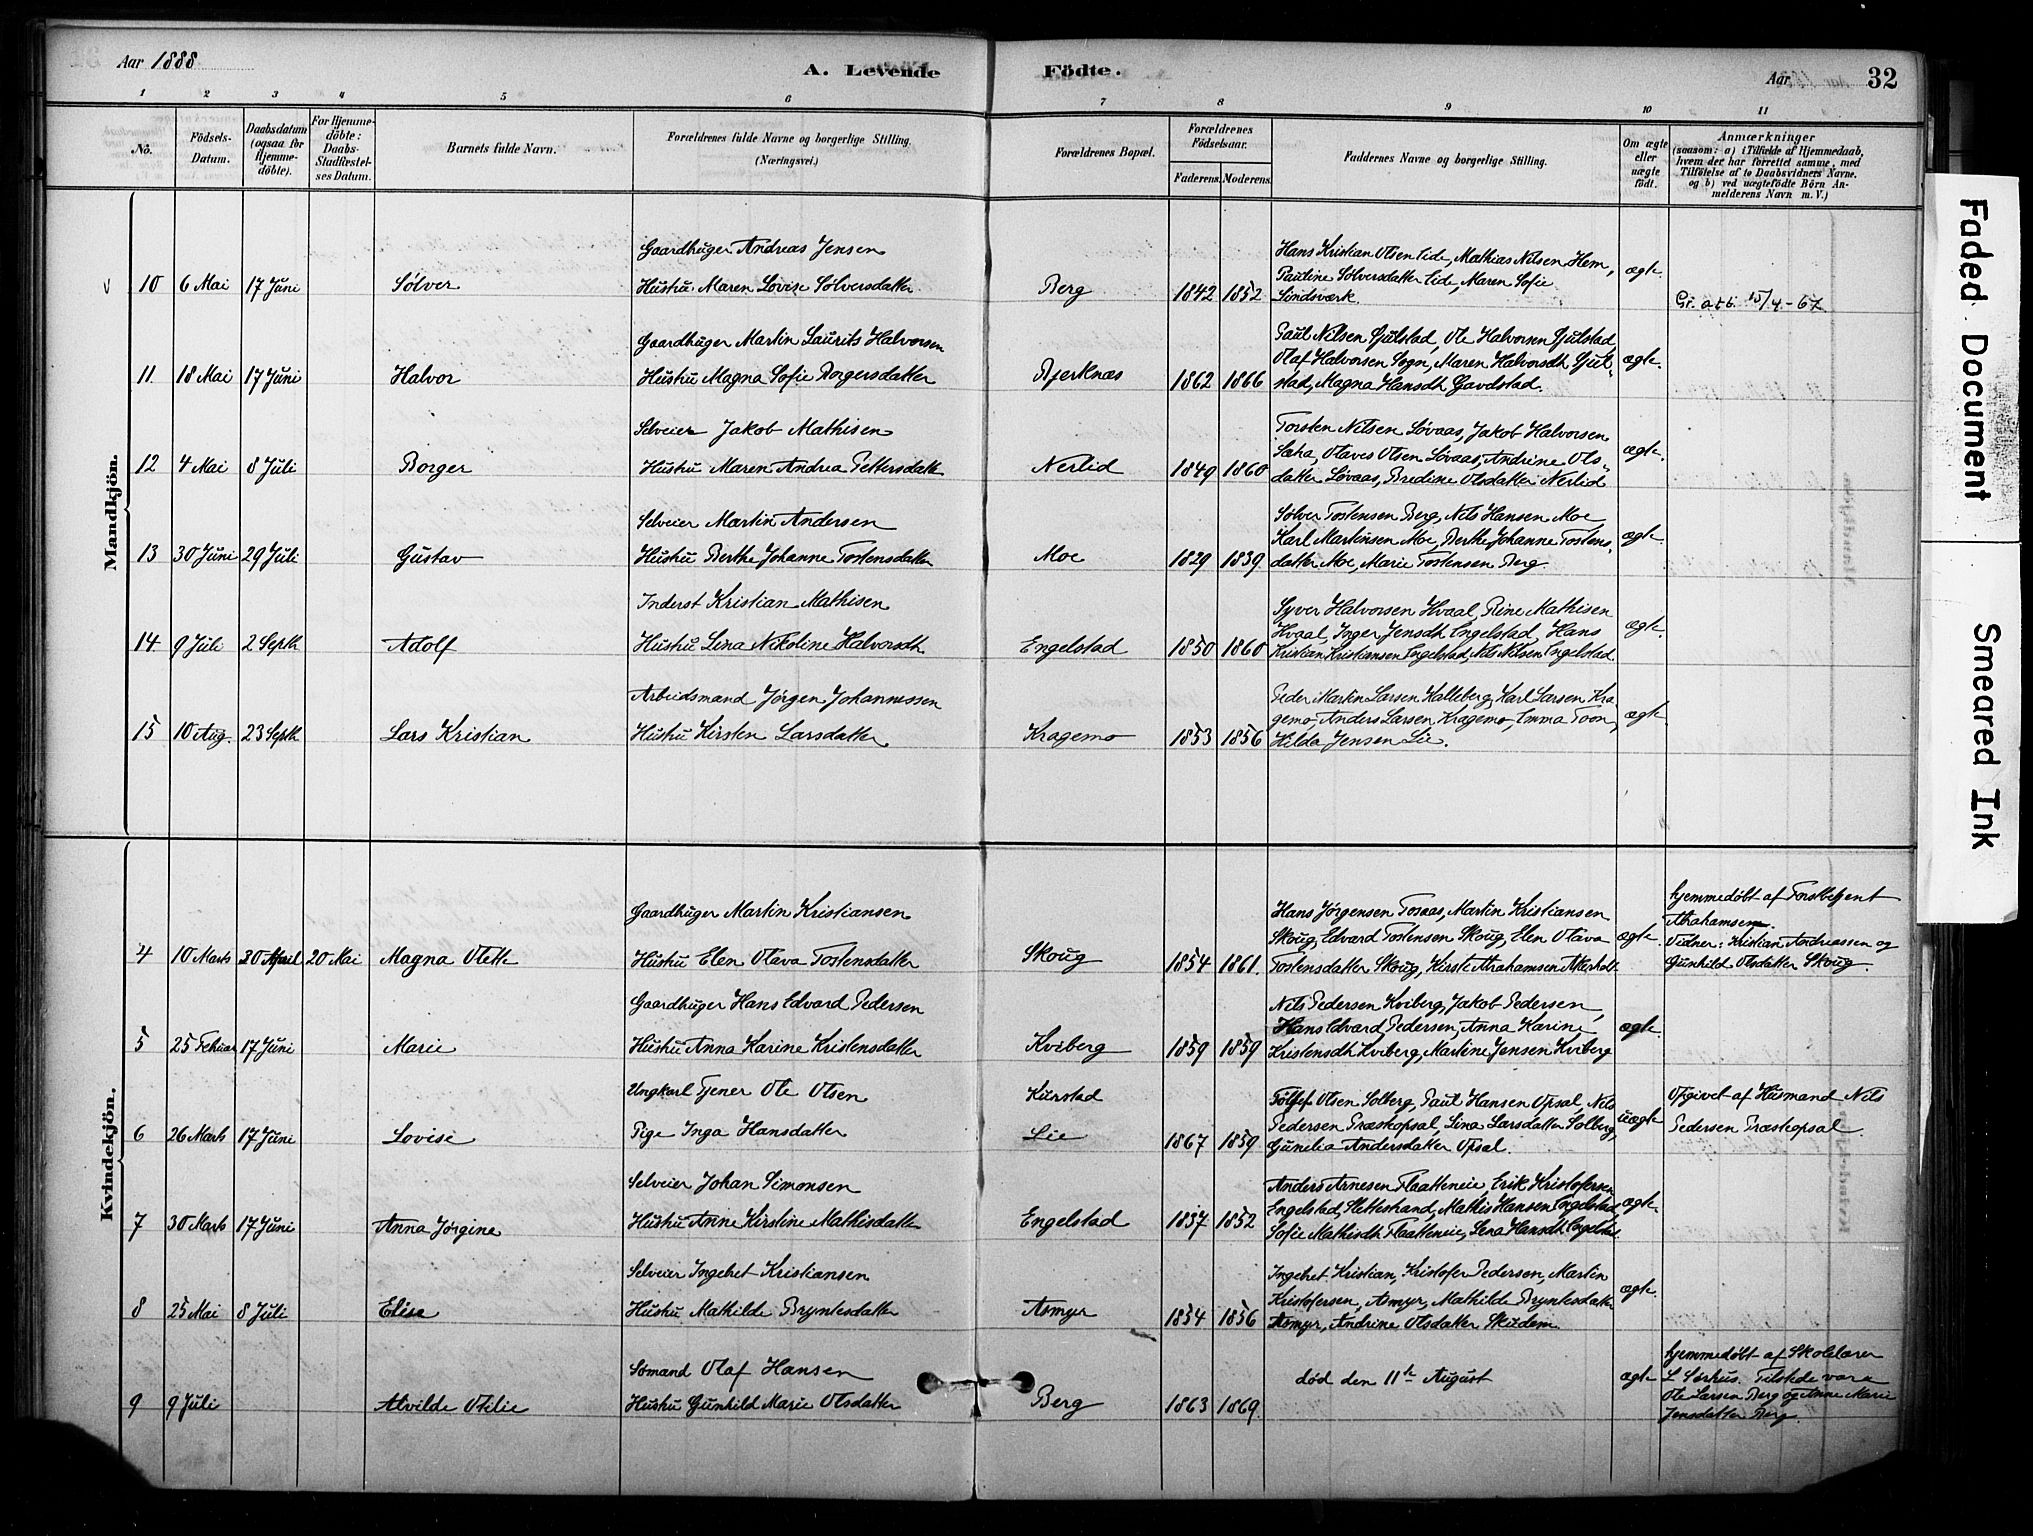 Aar 1888
A. Levende Födte.
Aar
32
1 2 3 4 5 6 7 8 9 10 11
No.
Födsels-Datum.
Daabsdatum (ogsaa for Hjemme-döbte).
For Hjemme-döbte: Daabs-Stadfæstel-ses Datum.
Barnets fulde Navn.
Forældrenes fulde Navne og borgerlige Stilling. (Næringsvei.)
Forældrenes Bopæl.
Forældrenes Födselsaar.
Faderens. Moderens.
Faddernes Navne og borgerlige Stilling.
Om ægte eller uægte födt.
Anmærkninger
(saasom: a) i Tilfælde af Hjemmedaab, hvem der har forrettet samme, med Tilföielse af to Daabsvidners Navne. og b) ved uægtefödte Börn An-melderens Navn m. V.)
Mandkjön.
Gaardbruger Andreas Jensen
10 6 Mai 17 Juni Sølver Hustru Maren Lovise Sølversdatter Berg 1842 1852
Hans Kristian Olsen Eide, Mathias Nilsen Hem,
Pauline Sølversdatter Eide, Maren Sofie
Lindsværk.
ægte
Gr. att. 15/4.-67
Gaardbruger Martin Laurits Halvorsen
11 18 Mai 17 Juni Halvor Hustru Magna Sofie Borgersdatter Bjerknæs 1862 1866
Paul Nilsen Gjulstad, Ole Halvorsen Gjulstad
Olaf Halvorsen Sogn, Maren Halvorsdtr Gjul-
stad, Magna Hansdtr Gavdstad.
ægte.
Selveier Jakob Mathisen
12 4 Mai 8 Juli Borger Hustru Maren Andrea Pettersdatter Nerlid 1849 1860
Torsten Nilsen Løvaas, Jakob Halvorsen
Olaves Olsen Løvaas, Andrine Ols-
datter Løvaas, Bredine Olsdatter Nerlid
ægte.
Selveier Martin Andersen
13 30 Juni 29 Juli Gustav Hustru Berthe Johanne Tostensdatter Moe 1829 1839
Sølver Tostensen Berg, Nils Hansen Moe
Karl Martinsen Moe, Berthe Johanne Tostens-
datter Moe, Marie Tostensen Berg.
ægte.
Inderst Kristian Mathisen
14 9 Juli 2 Septb Adolf Hustru Lina Nikoline Halvorsdtr Engelstad 1850 1860
Syver Halvorsen Hvaal, Rine Mathisen
Hvaal, Inger Jensdtr Engelstad, Hans
Kristian Kristiansen Engelstad, Nils Nilsen Engelstad.
ægte.
Arbeidsmand Jørgen Johannessen
15 10 Aug. 23 Septb Lars Kristian Hustru Kirsten Larsdatter Kragemo 1853 1856
Peder Martin Larsen Kalleberg, Karl Larsen Kra-
gemo, Anders Larsen Kragemo, Emma Toon,
Hilda Jensen Lie.
ægte
Kvindekjön.
Gaardbruger Martin Kristiansen
4 10 Marts 30 April 20 Mai Magna Olette Hustru Elen Olava Tostensdatter Skoug 1854 1861.
Hans Jørgensen Foraas, Martin Kristiansen
Skoug, Edvard Tostensen Skoug, Elen Olava
Tostensdatter Skoug, Kirsti Abrahamsen Akerholt.
ægte
hjemmedøbt af Forstbetjent
Abrahamsen.
Vidner: Kristian Andreassen og
Gunhild Olsdatter Skoug.
Gaardbruger Hans Edvard Pedersen
5 25 Februar 17 Juni Marie Hustru Anna Karine Kristensdatter Kviberg 1859 1859
Nils Pedersen Kviberg, Jakob Pedersen,
Hans Edvard Pedersen, Anna Karine
Kristensdtr Kviberg, Martine Jensen Kviberg
ægte.
Ungkarl Tjener Ole Olsen Kurstad
6 26 Marts 17 Juni Lovise Pige Inga Hansdatter Lie 1867 1859
Tollef Olsen Solberg, Paul Hansen Opsal, Nils
Pedersen Præstopsal, Lina Larsdatter Solberg,
Gunelia Andersdatter Opsal.
uægte
Opgivet af Husmand Nils
Pedersen Præstopsal.
Selveier Johan Simonsen
7 30 Marts 17 Juni Anna Jørgine Hustru Anne Kirstine Mathisdatter Engelstad 1837 1852
Anders Arnesen Flaatteneie, Erik Kristofersen
Engelstad, Slettestrand, Mathis Hansen Engelstad
Sofie Mathisdtr Flaatteneie, Lena Hansdtr Engelstad.
ægte
Selveier Ingebret Kristiansen
8 25 Mai 8 Juli Elise Hustru Mathilde Bryntesdatter Asmyr 1854 1856
Ingebret Kristian, Kristofer Pedersen, Martin
Kristofersen, Asmyr, Mathilde Bryntesdatter
Asmyr, Andrine Olsdatter
ægte.
Sømand Olaf Hansen
9 9 Juli Alvilde Otilie Hustru Gunhild Marie Olsdatter Berg 1863 1869.
død den 11te August
ægte
hjemmedøbt af Skolelærer
L Sørhus. Tilstede vare
Ole Larsen Berg og Anne Marie
Jensdatter Berg.
Faded Document
Smeared Ink